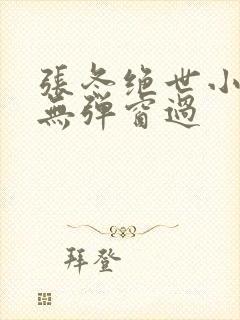 張冬绝世小
無彈窗過
拜登